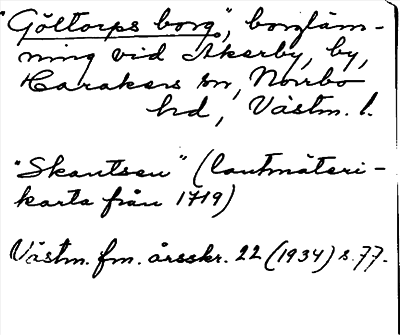 "Göltorps borg", borgläm-
ning vid Åkerby, by,
Harakers sn, Norrbo
hd, Västm. l.
"Skantsen" (lantmäteri-
karta från 1719)
Västm. fm. årsskr. 22 (1934) s. 77.